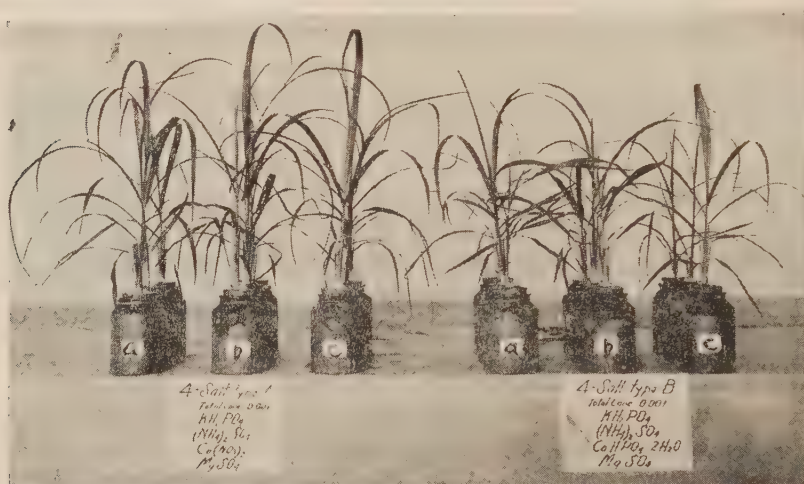 a
b
c
a
b
c
4-Salt type
Total conc 0.001
KH2PO4
(NH4)2 SO4
Ca(NO3)2
MgSO4
4-Salt type B
Total conc 0.001
KH2PO4
(NH4)2 SO4
CaHPO4 2H2O
Mg SO4